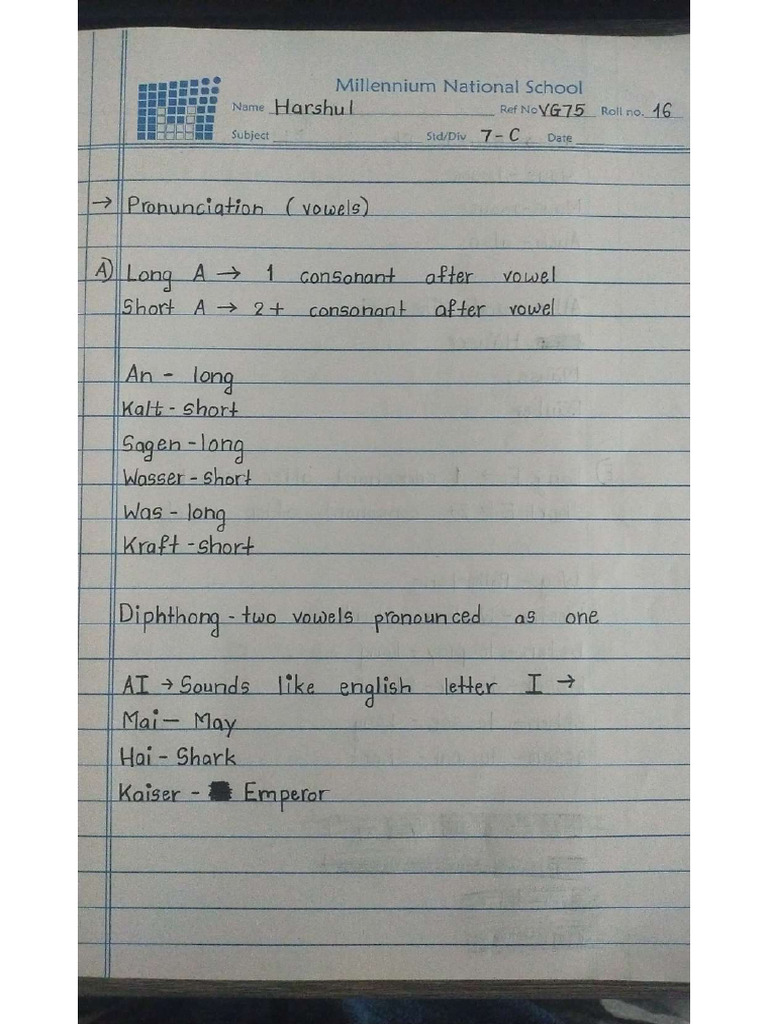 Millennium National School
Name Harshul Ref No VG75 Roll no. 16
Subject Std/Div 7-C Date
→ Pronunciation (vowels)
A) Long A → 1 consonant after vowel
Short A → 2+ consonant after vowel
An - long
Kalt - short
Sagen - long
Wasser - short
Was - long
Kraft - short
Diphthong - two vowels pronounced as one
AI → Sounds like english letter I →
Mai - May
Hai - Shark
Kaiser - Emperor